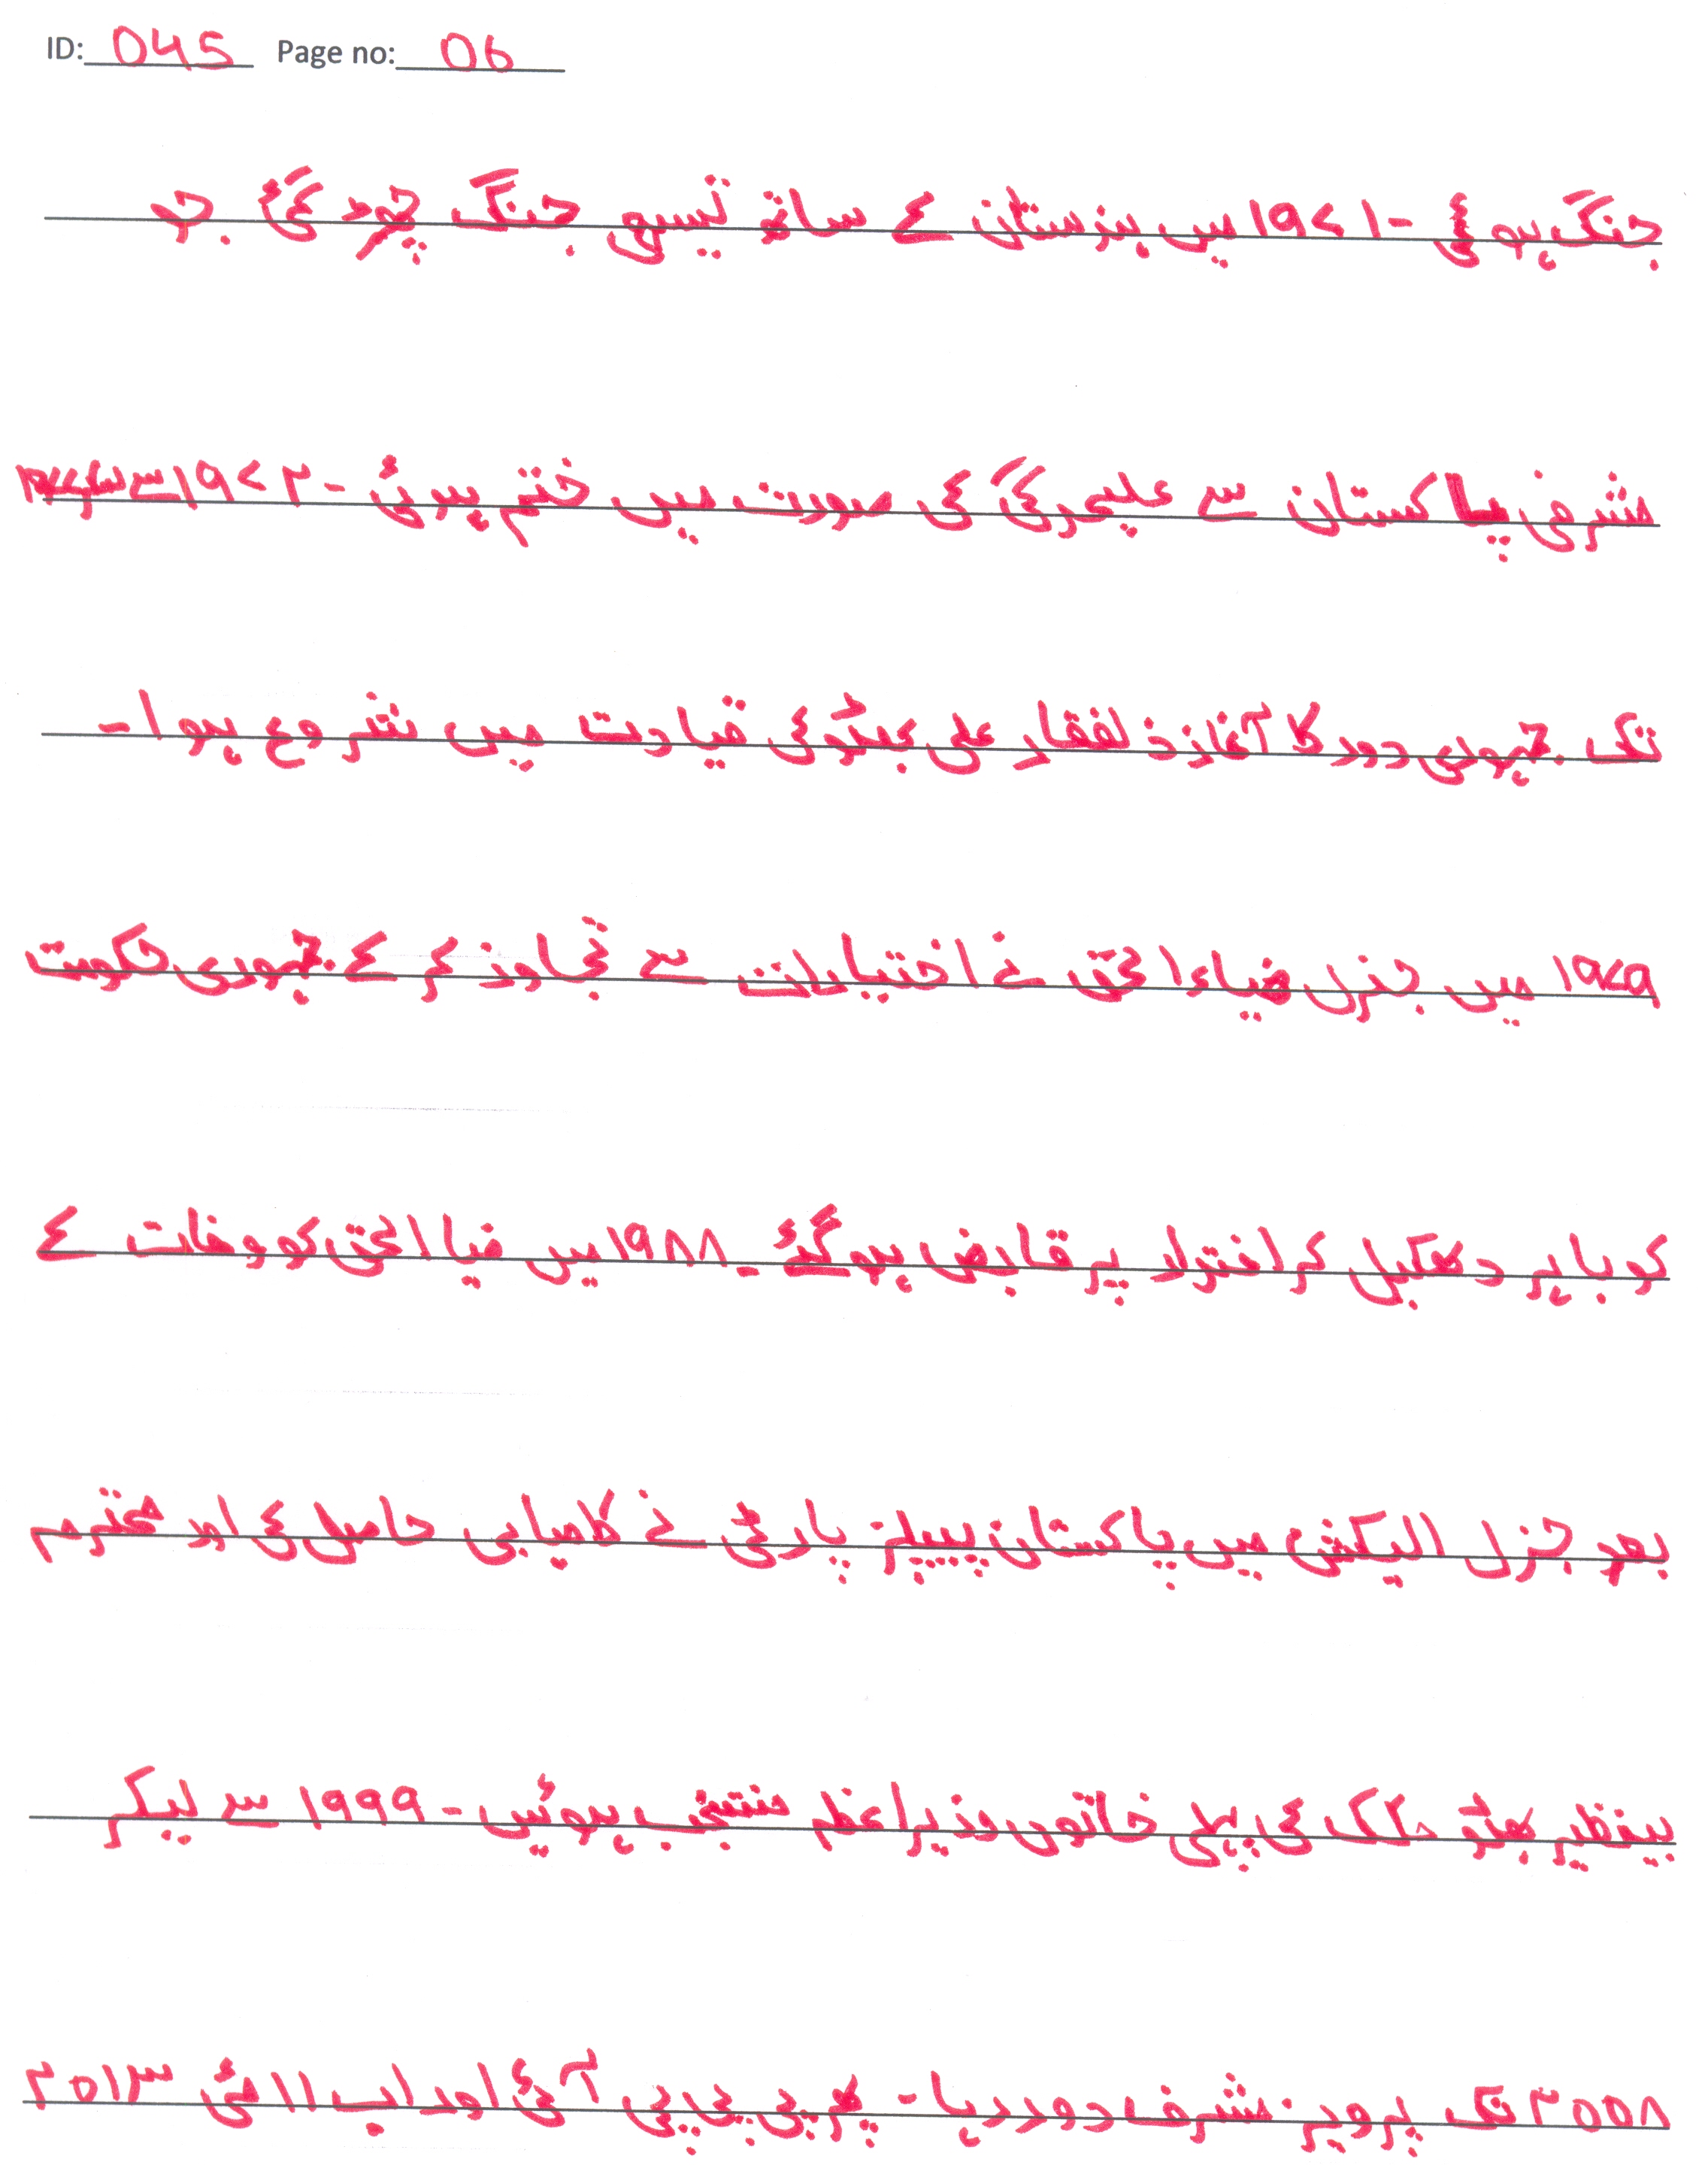 ID: 045 Page no: 06
جنگ ہوئی - ۱۹۷۱ میں ہندستان کے ساتھ تیسری جنگ چھڑ گئی جو
مشرقی پاکستان سے علیحدگی کی صورت میں ختم ہوئی - ۱۹۷۲ سے
تک جمہوری دور کا آغاز ذلفقار علی بھٹو کی قیادت میں شروع ہوا -
۱۹۷۹ میں جنرل ضیاء الحق نے اختیارات سے تجاوز کر کے جمہوری حکومت
کو باہر دھکیل کر اقتدار پر قابض ہو گئے - ۱۹۸۸ میں ضیا الحق کو وفات کے
بعد جنرل الیکشن میں پاکستان پیپلز پارٹی نے کامیابی حاصل کی اور محترم
بینظیر بھٹو ملک کی پہلی خاتون وزیر اعظم منتخب ہوئیں - ۱۹۹۹ سے لیکر
۲۰۰۸ تک پرویز مشرف دور رہا - پھر پی پی پی آئی اور اب ۱۱ مئی ۲۰۱۳